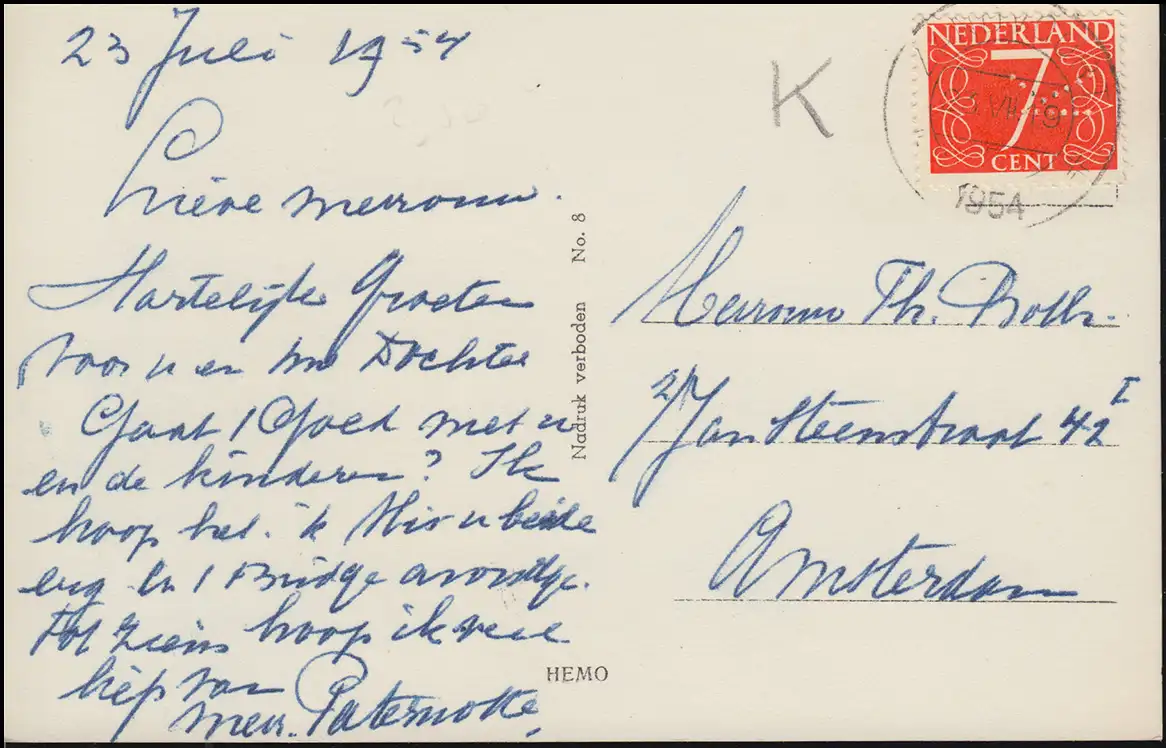 23 Juli 1954
Lieve mevrouw.
Hartelijke Groeten
voor u en uw Dochter
Gaat 't Goed met u
en de kinderen? Ik
hoop het. ik Mis u beide
erg en 't Bridge avondtje.
Tot ziens hoop ik veel
liefs van
mevr. Paternotte,
Nadruk verboden No. 8
HEMO
K
NEDERLAND
7
CENT
1954
Mevrouw Th.
Jan Steenstraat 42 I
Amsterdam